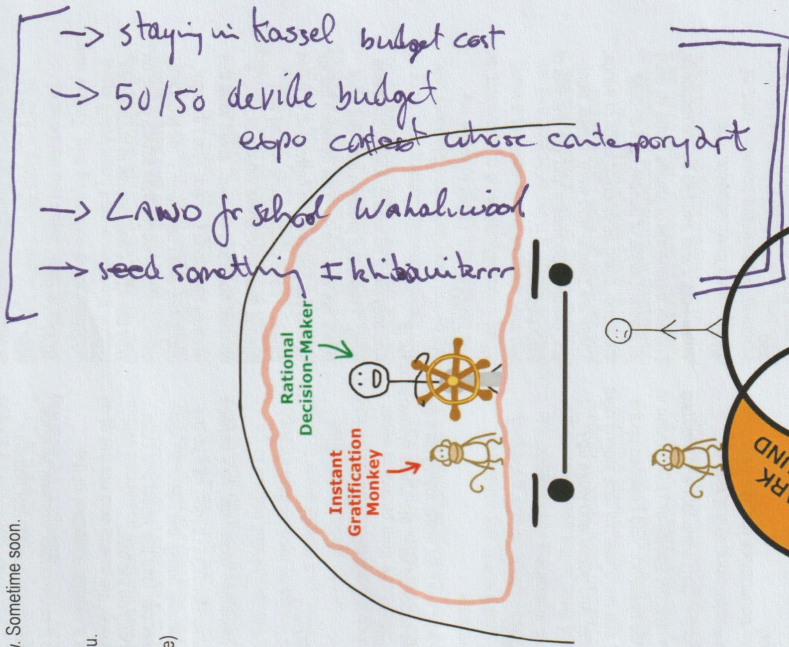 → staying in Kassel budget cost
→ 50/50 devide budget
expo contest whose contemporary art
→ LAWO for school Wahaliwood
→ seed something
Rational
Decision-Maker
Instant
Gratification
Monkey
. Sometime soon.
u.
e)
ARK
UND